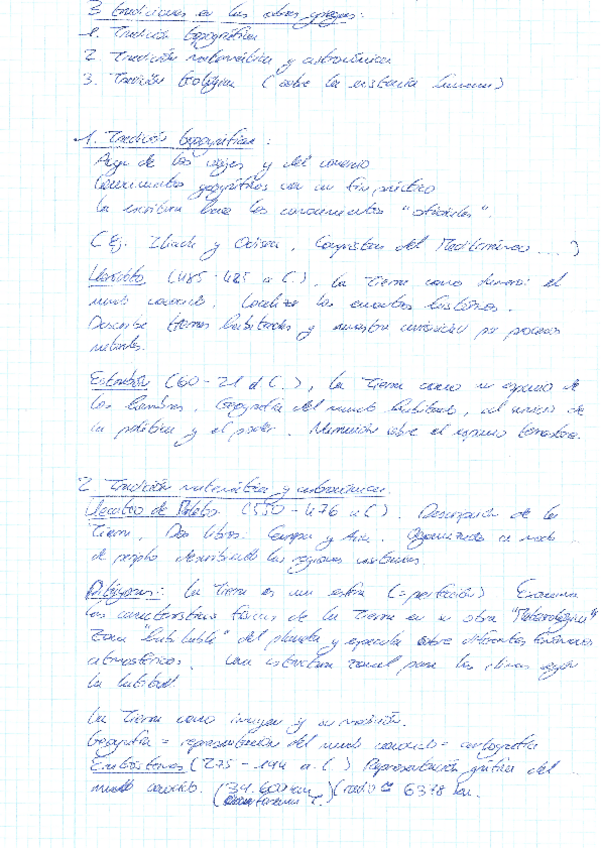 3 tradiciones en las obras griegas:
1. Tradición topográfica
2. Tradición matemática y astronómica
3. Tradición teológica (sobre la existencia humana)
1. Tradición topográfica:
de los viajes y del comercio
Conocimientos geográficos con un fin práctico
La escritura hace los conocimientos "oficiales".
(Ej. Iliada y Odisea, del Mediterráneo ...)
Heródoto (485-425 a C.). La Tierra como el
mundo conocido. Localiza los eventos históricos.
Describe tierras habitadas y muestra curiosidad por procesos
naturales.
Estrabón (60-21 d C.), la Tierra como un espacio de
los hombres. Geografía del mundo habitado, al servicio de
la política y el poder. sobre el espacio terrestre.
2. Tradición matemática y astronómica.
Hecateo de Mileto (550-476 a C). Descripción de la
Tierra. Dos libros: Europa y Asia. Organizada en modo
de periplo describiendo las regiones
La Tierra es una esfera (= perfección) Examina
las características físicas de la Tierra en su obra "Meteorológica"
Zona "habitable" del planeta y especula sobre diferentes fenómenos
atmosféricos. Una estructura zonal para los climas según
la latitud.
La Tierra como imagen y su medición.
Geografía = representación del mundo conocido = cartografía
Eratóstenes (275-194 a. C) Representación gráfica del
mundo conocido. (39.600 km) (radio = 6378 km.